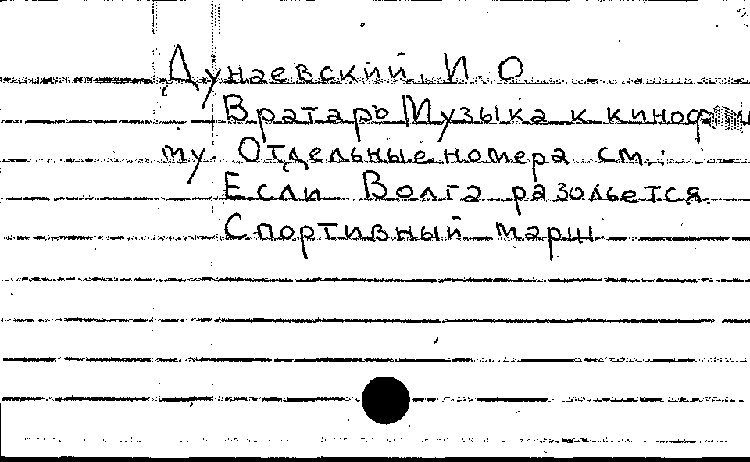 Дунаевский, И. О
Вратарь Музыка к кинофи
му. Отдельные номера см.:
Если Волга разольется
Спортивный марш